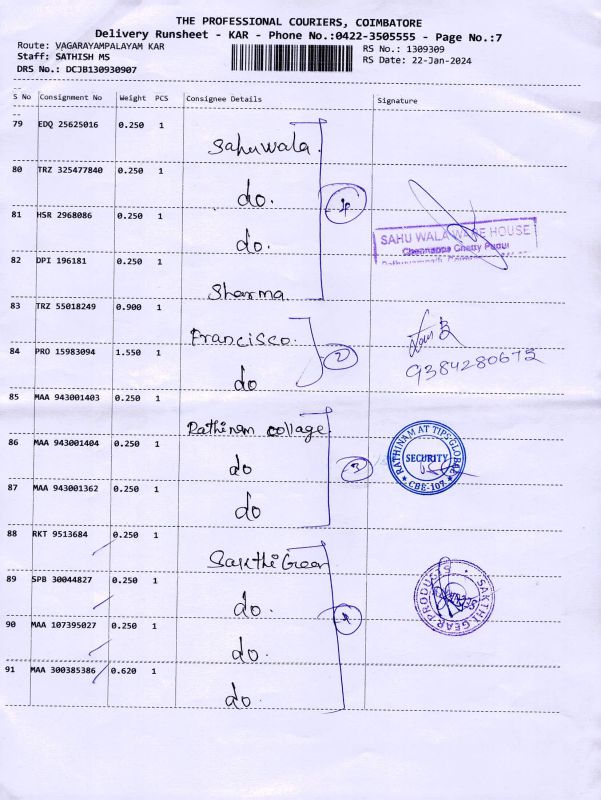 THE PROFESSIONAL COURIERS, COIMBATORE
Delivery Runsheet - KAR - Phone No.:0422-3505555 - Page No.:7
Route: VAGARAYAMPALAYAM KAR
RS No.: 1309309
Staff: SATHISH MS
RS Date: 22-Jan-2024
DRS No.: DCJB130930907
S No Consignment No Weight PCS Consignee Details Signature
79 EDQ 25625016 0.250 1
Sahuwala.
80 TRZ 325477840 0.250 1
do.
81 HSR 2968086 0.250 1
do.
SAHU WALA WARE HOUSE
Chennappa Chetty Pudur
82 DPI 196181 0.250 1
Sharma
83 TRZ 55018249 0.900 1
Francisco.
84 PRO 15983094 1.550 1
do
2
9384280675
85 MAA 943001403 0.250 1
Rathinam collage
86 MAA 943001404 0.250 1
do
3
RATHINAM AT TIPS GLOBAL
SECURITY
CBE-107
87 MAA 943001362 0.250 1
do
88 RKT 9513684 0.250 1
Sakthi Gear
89 SPB 30044827 0.250 1
do.
SAKTHI GEAR PRODUCTS
90 MAA 107395027 0.250 1
do.
91 MAA 300385386 0.620 1
do.